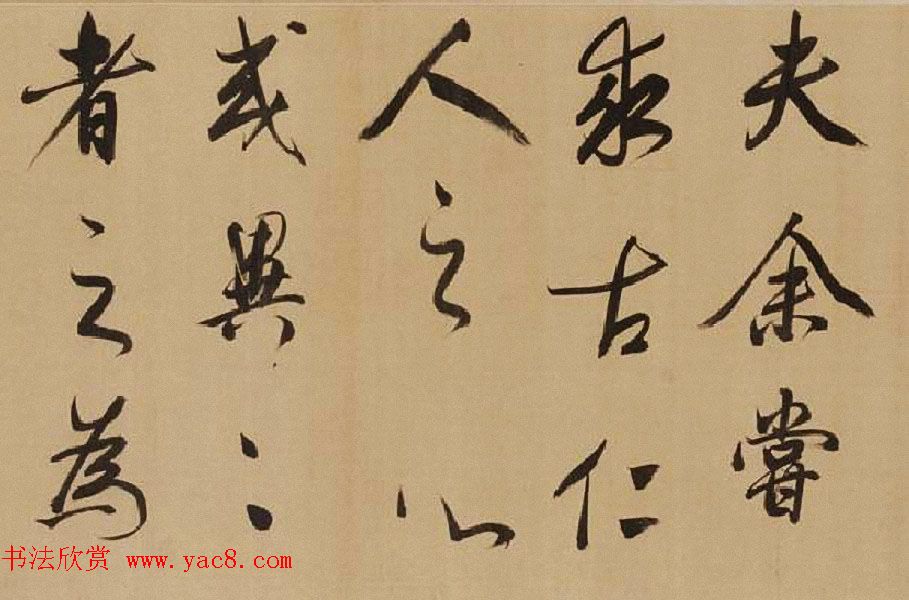 夫余嘗
求古仁
人之心
或異二
者之為
书法欣赏 www.yac8.com